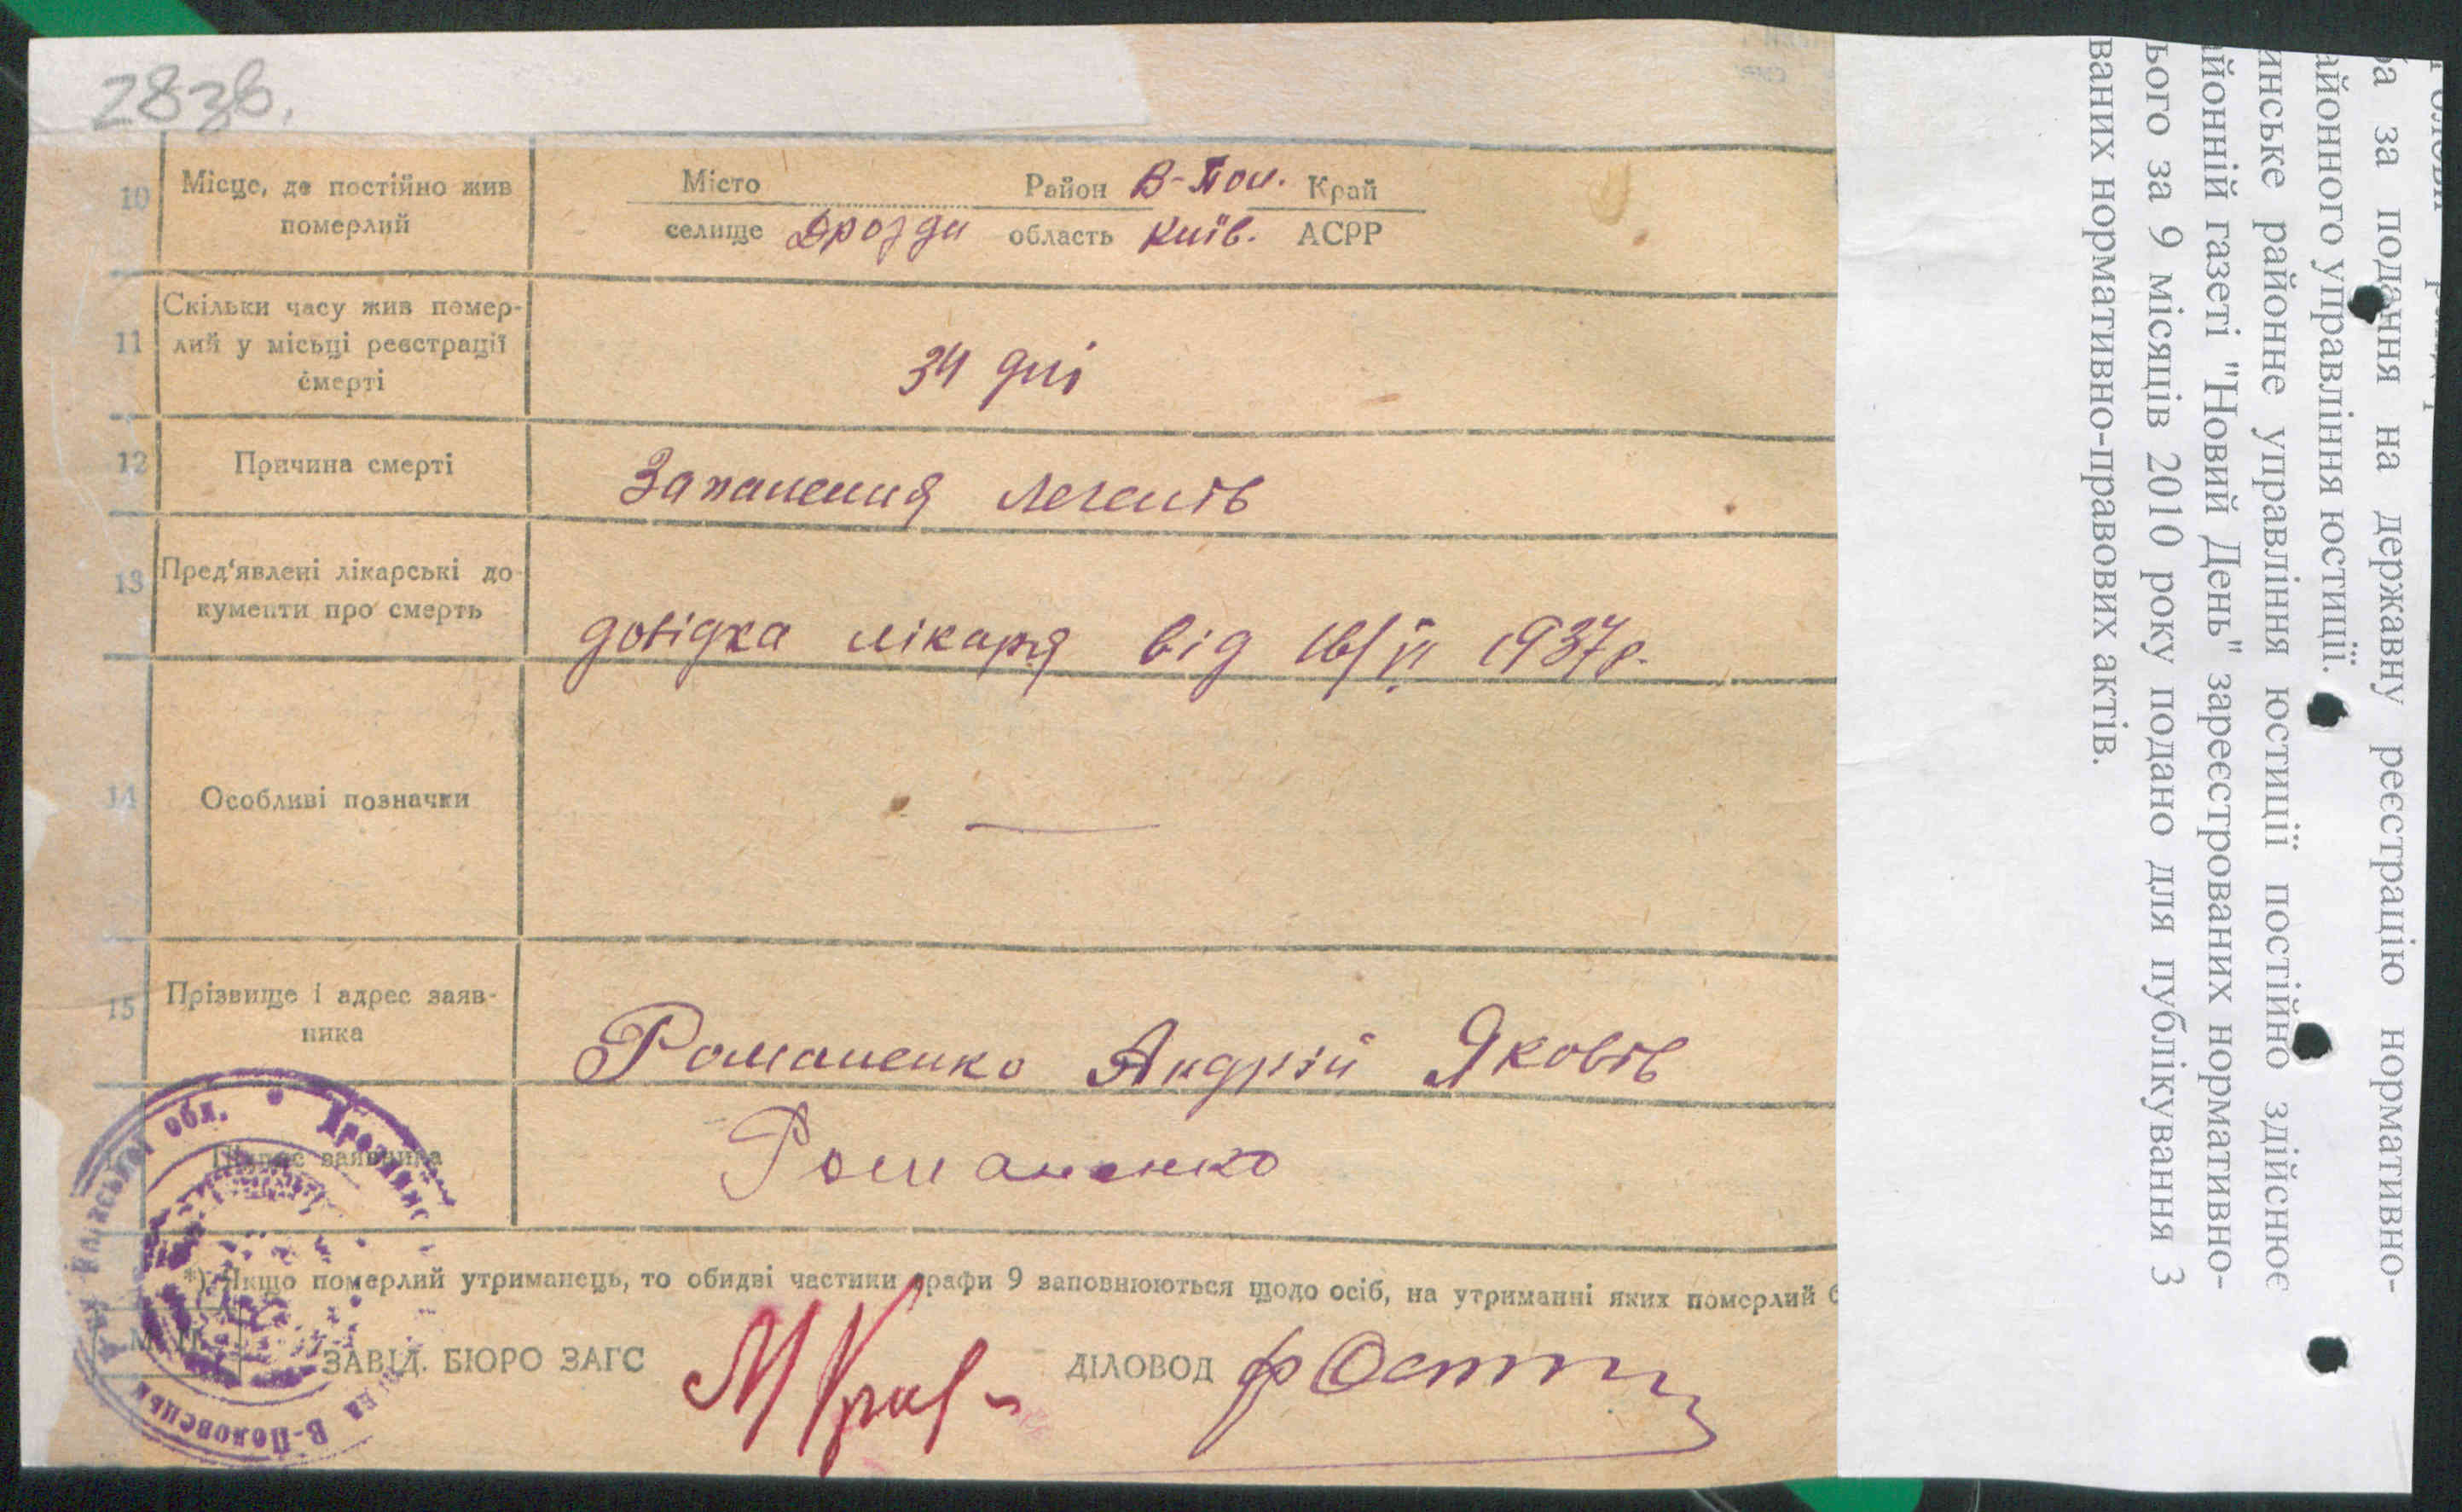 283в.
10 Місце, де постійно жив
померлий
Місто Район В-Пол. Край
селище Дрозди область Київ. АСРР
11 Скільки часу жив помер-
лий у місьці реєстрації
смерті
34 дні
12 Причина смерті
Запалення легенів
13 Пред'явлені лікарські до-
кументи про смерть
довідка лікаря від 16/VI 1937 р.
14 Особливі позначки
—
15 Прізвище і адрес заяв-
ника
Романенко Андрій Яковів
заявника
Романенко
*) Якщо померлий утриманець, то обидві частини графи 9 заповнюються щодо осіб, на утриманні яких померлий
М. П.
ЗАВІД. БЮРО ЗАГС
ДІЛОВОД
обл.
В-Половецьк
за подання на державну реєстрацію нормативно-
айонного управління юстиції.
инське районне управління юстиції постійно здійснює
айонній газеті "Новий День" зареєстрованих нормативно-
ього за 9 місяців 2010 року подано для публікування 3
ваних нормативно-правових актів.